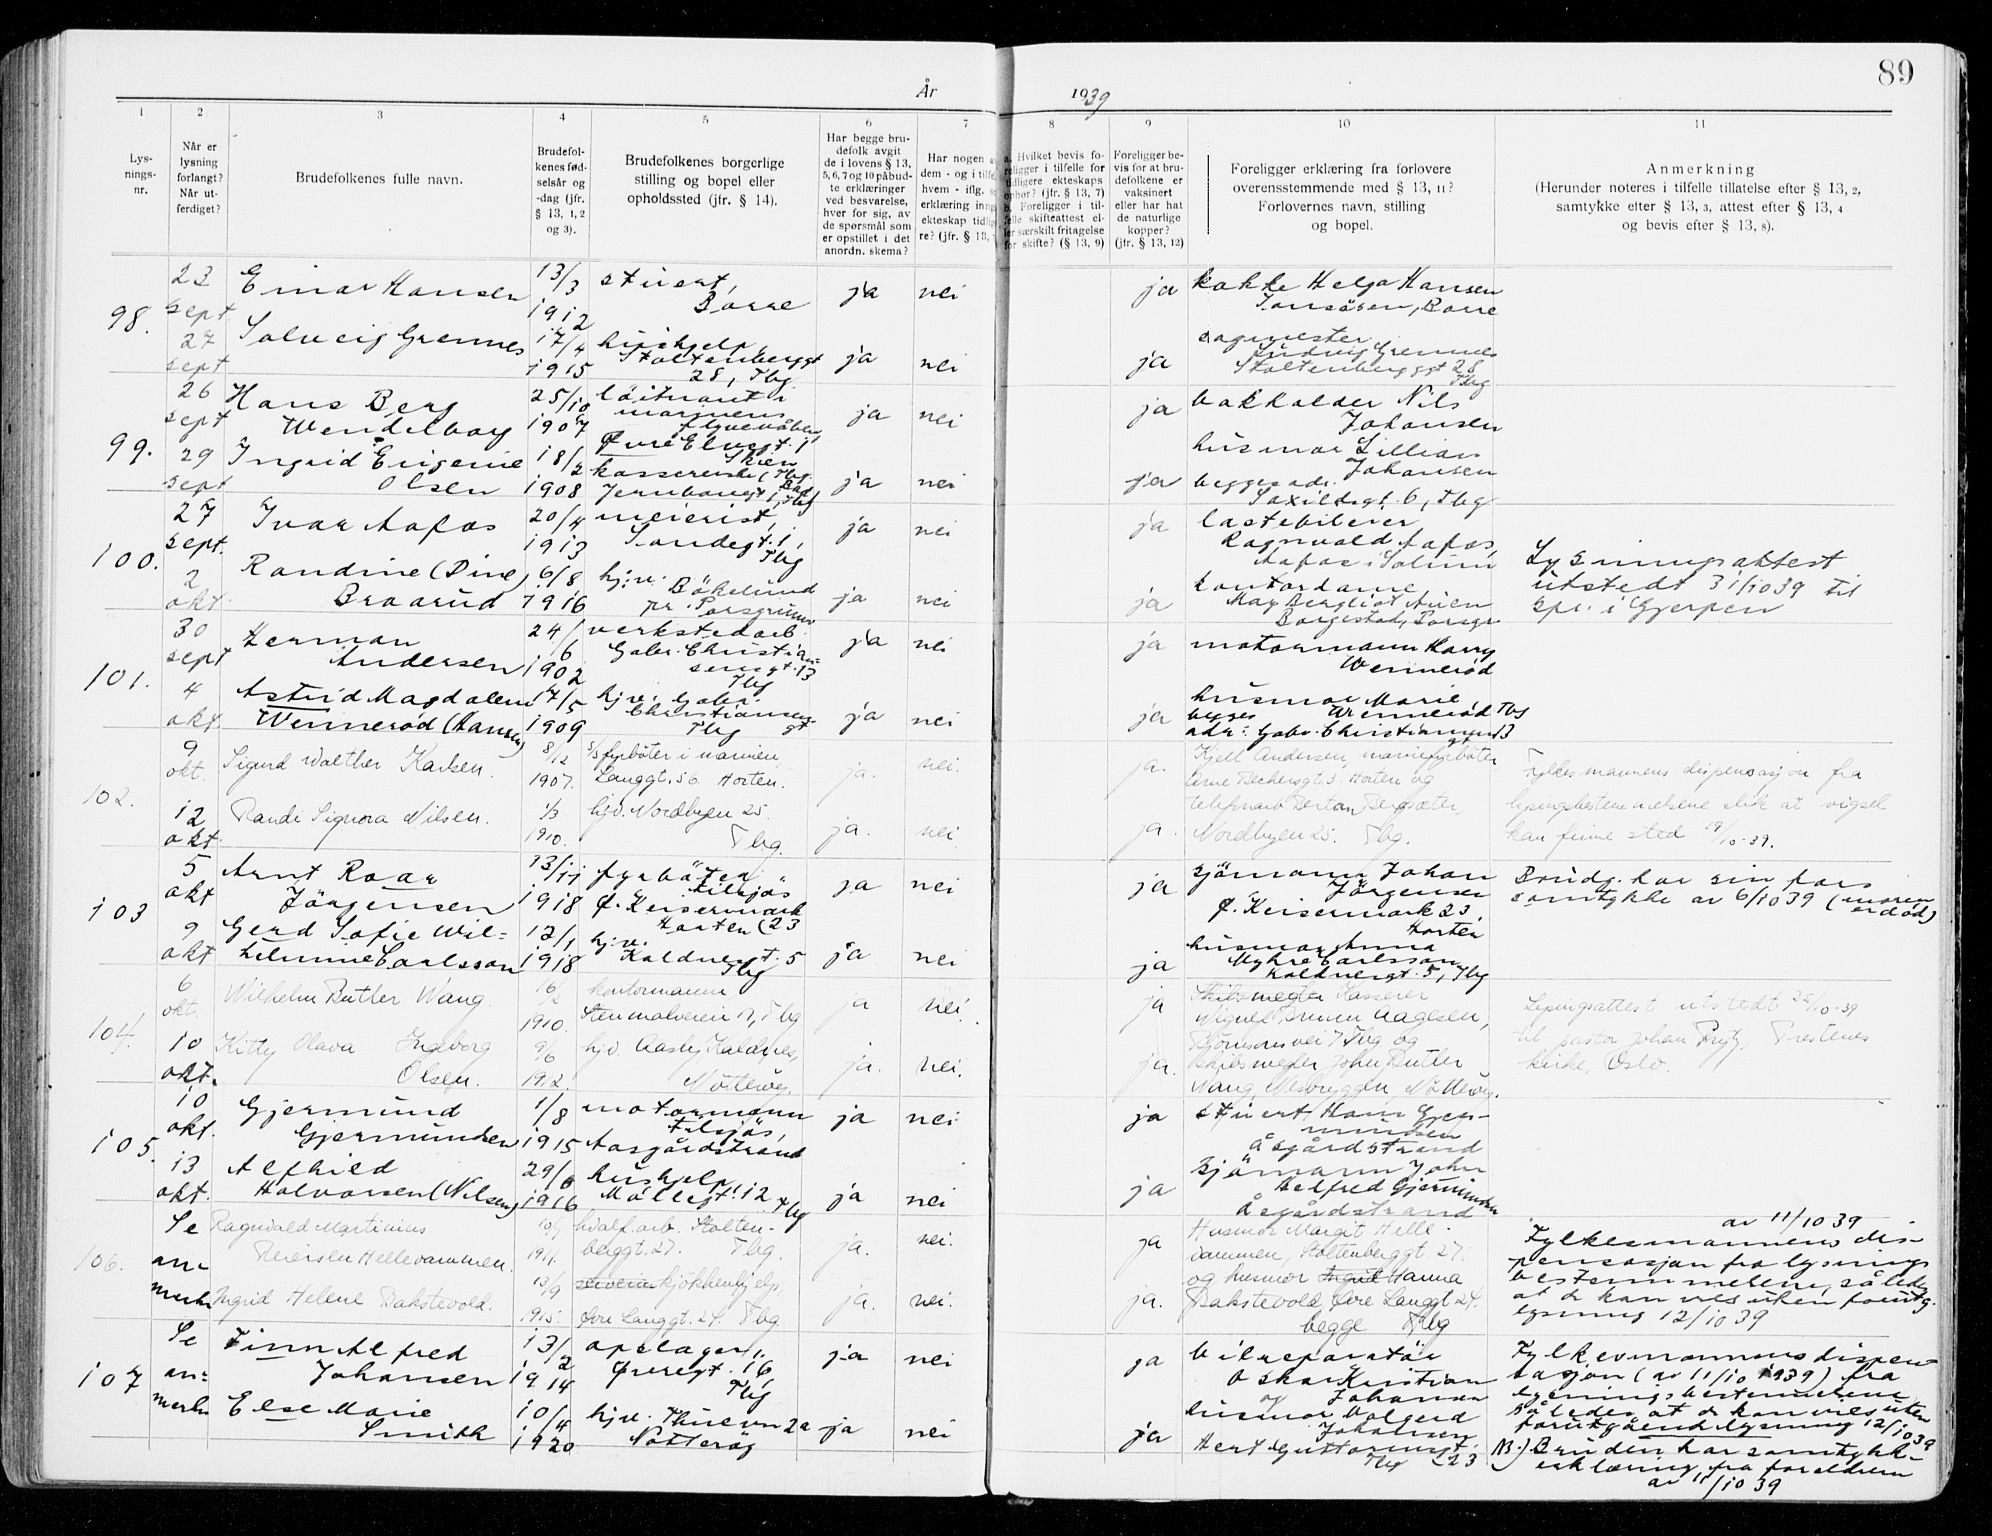 89
År 1939
1 2 3 4 5 6 7 8 9 10 11
Lys-
nings-
nr.
Når er
lysning
forlangt?
Når ut-
ferdiget?
Brudefolkenes fulle navn.
Brudefol-
kenes fød-
selsår og
-dag (jfr.
§ 13, 1, 2
og 3).
Brudefolkenes borgerlige
stilling og bopel eller
opholdssted (jfr. § 14).
Har begge bru-
defolk avgit
de i lovens § 13,
5, 6, 7 og 10 påbud-
te erklæringer
ved besvarelse,
hver for sig, av
de spørsmål som
er opstillet i det
anordn. skema?
Har nogen a
dem - og i tilfe
hvem - iflg.
erklæring inng
ekteskap tidlig
re? (jfr. § 13,
a. Hvilket bevis fo-
religger i tilfelle for
tidligere ekteskaps
ophør? (jfr. § 13, 7)
b. Foreligger i til-
felle skifteattest el-
ler særskilt fritagelse
for skifte? (§ 13, 9)
Foreligger be-
vis for at bru-
defolkene er
vaksinert
eller har hat
de naturlige
kopper?
(jfr. § 13, 12)
Foreligger erklæring fra forlovere
overensstemmende med § 13, 11?
Forlovernes navn, stilling
og bopel.
Anmerkning
(Herunder noteres i tilfelle tillatelse efter § 13, 2,
samtykke efter § 13, 3, attest efter § 13, 4
og bevis efter § 13, 8).
98.
23 sept
Einar Hansen
13/3 1912
stuert,
Borre
ja nei
ja
kokke Helga Hansen
Borre
27 sept
Solveig Grennes
17/4 1915
hushjelp,
Stoltenberggt
28, Tbg.
ja nei
ja
Ludvig Grennes
Stoltenberggt 28
Tbg
99.
26 sept
Hans Berg
Wendelborg
25/10 1907
løitnant i
marinens
flyvevåben
Øvre Elvegt. 1
Skien
ja nei
ja
bokholder Nils
Johansen
29 sept
Ingrid Eugenie
Olsen
18/2 1908
kassererske (Tbg.
Bad)
Jernbanegt 1, Tbg
ja nei
ja
husmor Lillian
Johansen
begges adr.
Saxildsgt. 6, Tbg
100.
27 sept.
Ivar Aafos
20/4 1913
meierist,
Tbg
ja nei
ja
lastebileier
Ragnvald Aafos,
Aafos i Solum
2 okt.
Randine (Dine)
Braarud
6/8 1916
hj.v.
Bökelund
pr. Porsgrunn
ja nei
ja
kontordame
May Bergliot
Borgestad, Porsgr
Lysningsattest
utstedt 31/10 39 til
spr. i Gjerpen
101.
30 sept
Herman
Andersen
24/6 1902
verkstedarb.
Gabr. Christian-
sensgt. 13
Tbg
ja nei
ja
motormann Harry
Wennerød
4 okt
Astrid Magdalene
Wennerød (Hansen)
17/5 1909
hj.v. Gabr.
Christiansens-
gt
Tbg
ja nei
ja
husmor Marie
Wennerød Tbg
begges
adr: Gabr. Christiansensgt 13
102.
9 okt.
Sigurd Walther Karlsen.
8/12 1907.
fyrbøter i marinen,
Langgt. 56. Horten.
ja. nei.
ja.
Kjell Andersen, marinefyrbøter
Horten og
12 okt
Randi Signora Nilsen.
1/3 1910.
hjv. Nordbyen 25.
Tbg.
ja. nei
ja.
Nordbyen 25. Tbg.
Fylkesmannens dispensasjon fra
lysingsbestemmelsene slik at vigsel
kan finne sted 19/10-39.
103
5 okt
Arnt Roar
Jörgensen
13/11 1918
fyrböter
tilsjøs
Ø. Keisermark
Horten (23
ja nei
ja
sjömann Johan
Jörgensen
Ø. Keisermark 23,
Horten
Brudg. har sin fars
samtykke av 6/10 39 (moren
er död)
9 okt
Gerd Sofie Wil-
helmine Carlsson
12/1 1918
hj.v.
Kaldnesgt. 5
Tbg
ja nei
ja
husmor Anna
Myhre Carlsson
Kaldnesgt. 5, Tbg
104.
6 okt.
Wilhelm Butler Wang.
16/2 1910.
kontormann,
Stenmalveien 17, Tbg
ja nei.
ja
Skibsmegler Kasserer
Aagesen,
Bjørnsonsvei 7 Tbg og
10 okt.
Kitty Olava Ingeborg
Olsen.
9/6 1912.
hjv. Aasly, Kaldnes,
Nøtterøy.
ja. nei.
ja.
skibsmegler John Butler
Wang, Nøtterøy.
Lysingsattest utstedt 25/10-39
til pastor Johan
kirke, Oslo.
105.
10 okt.
Gjermund
Gjermundsen
1/8 1915
motormann
tilsjøs,
Aasgårdstrand
ja nei
ja
stuert Hans Gjer-
mundsen
Åsgårdstrand
13 okt.
Alfhild
Halvorsen (Nilsen)
29/6 1916
hushjelp
Möllegt. 12
Tbg
ja nei
ja
sjömann John
Helfred Gjermundsen
Åsgårdstrand
106.
Se
an-
merkn
Ragnvald Martinius
Reiersen Hellevammen.
10/7 1911.
hvalf.arb. Stolten-
berggt. 27. Tbg.
ja. nei.
ja
Husmor Margit Helle-
vammen, Stoltenberggt. 27.
Ingrid Helene Bakstevold.
13/9 1915.
kjökkenhjelp,
Øvre Langgt. 24. Tbg.
ja. nei.
ja.
og husmor Ingrid Hanna
Bakstevold, Øvre Langgt 24.
begge Tbg
av 11/10 39
Fylkesmannens dis-
pensasjon fra lysnings
bestemmelsene, således
at de kan vies uten forutg.
lysning 12/10 39
107
Se
an-
merkn
Finn Alfred
Johansen
13/2 1914
opslager,
Øvregt. 16,
Tbg
ja nei
ja
bilreparatör
Oskar Kristian
Johansen
og
Else Marie
Smith
10/4 1920
hj.v. Thuevn 2a
Nötteröy
ja nei
ja
husmor Valgerd
Johansen
Hert. Guttormsgt.
Tbg (23
Fylkesmannens dispen-
sasjon (av 11/10 1939) fra
lysningsbestemmelsene
således at de kan vies uten
forutgående lysning 12/10 39
NB.) Bruden har samtykk-
erklæring fra foreldrene
av 11/10 39